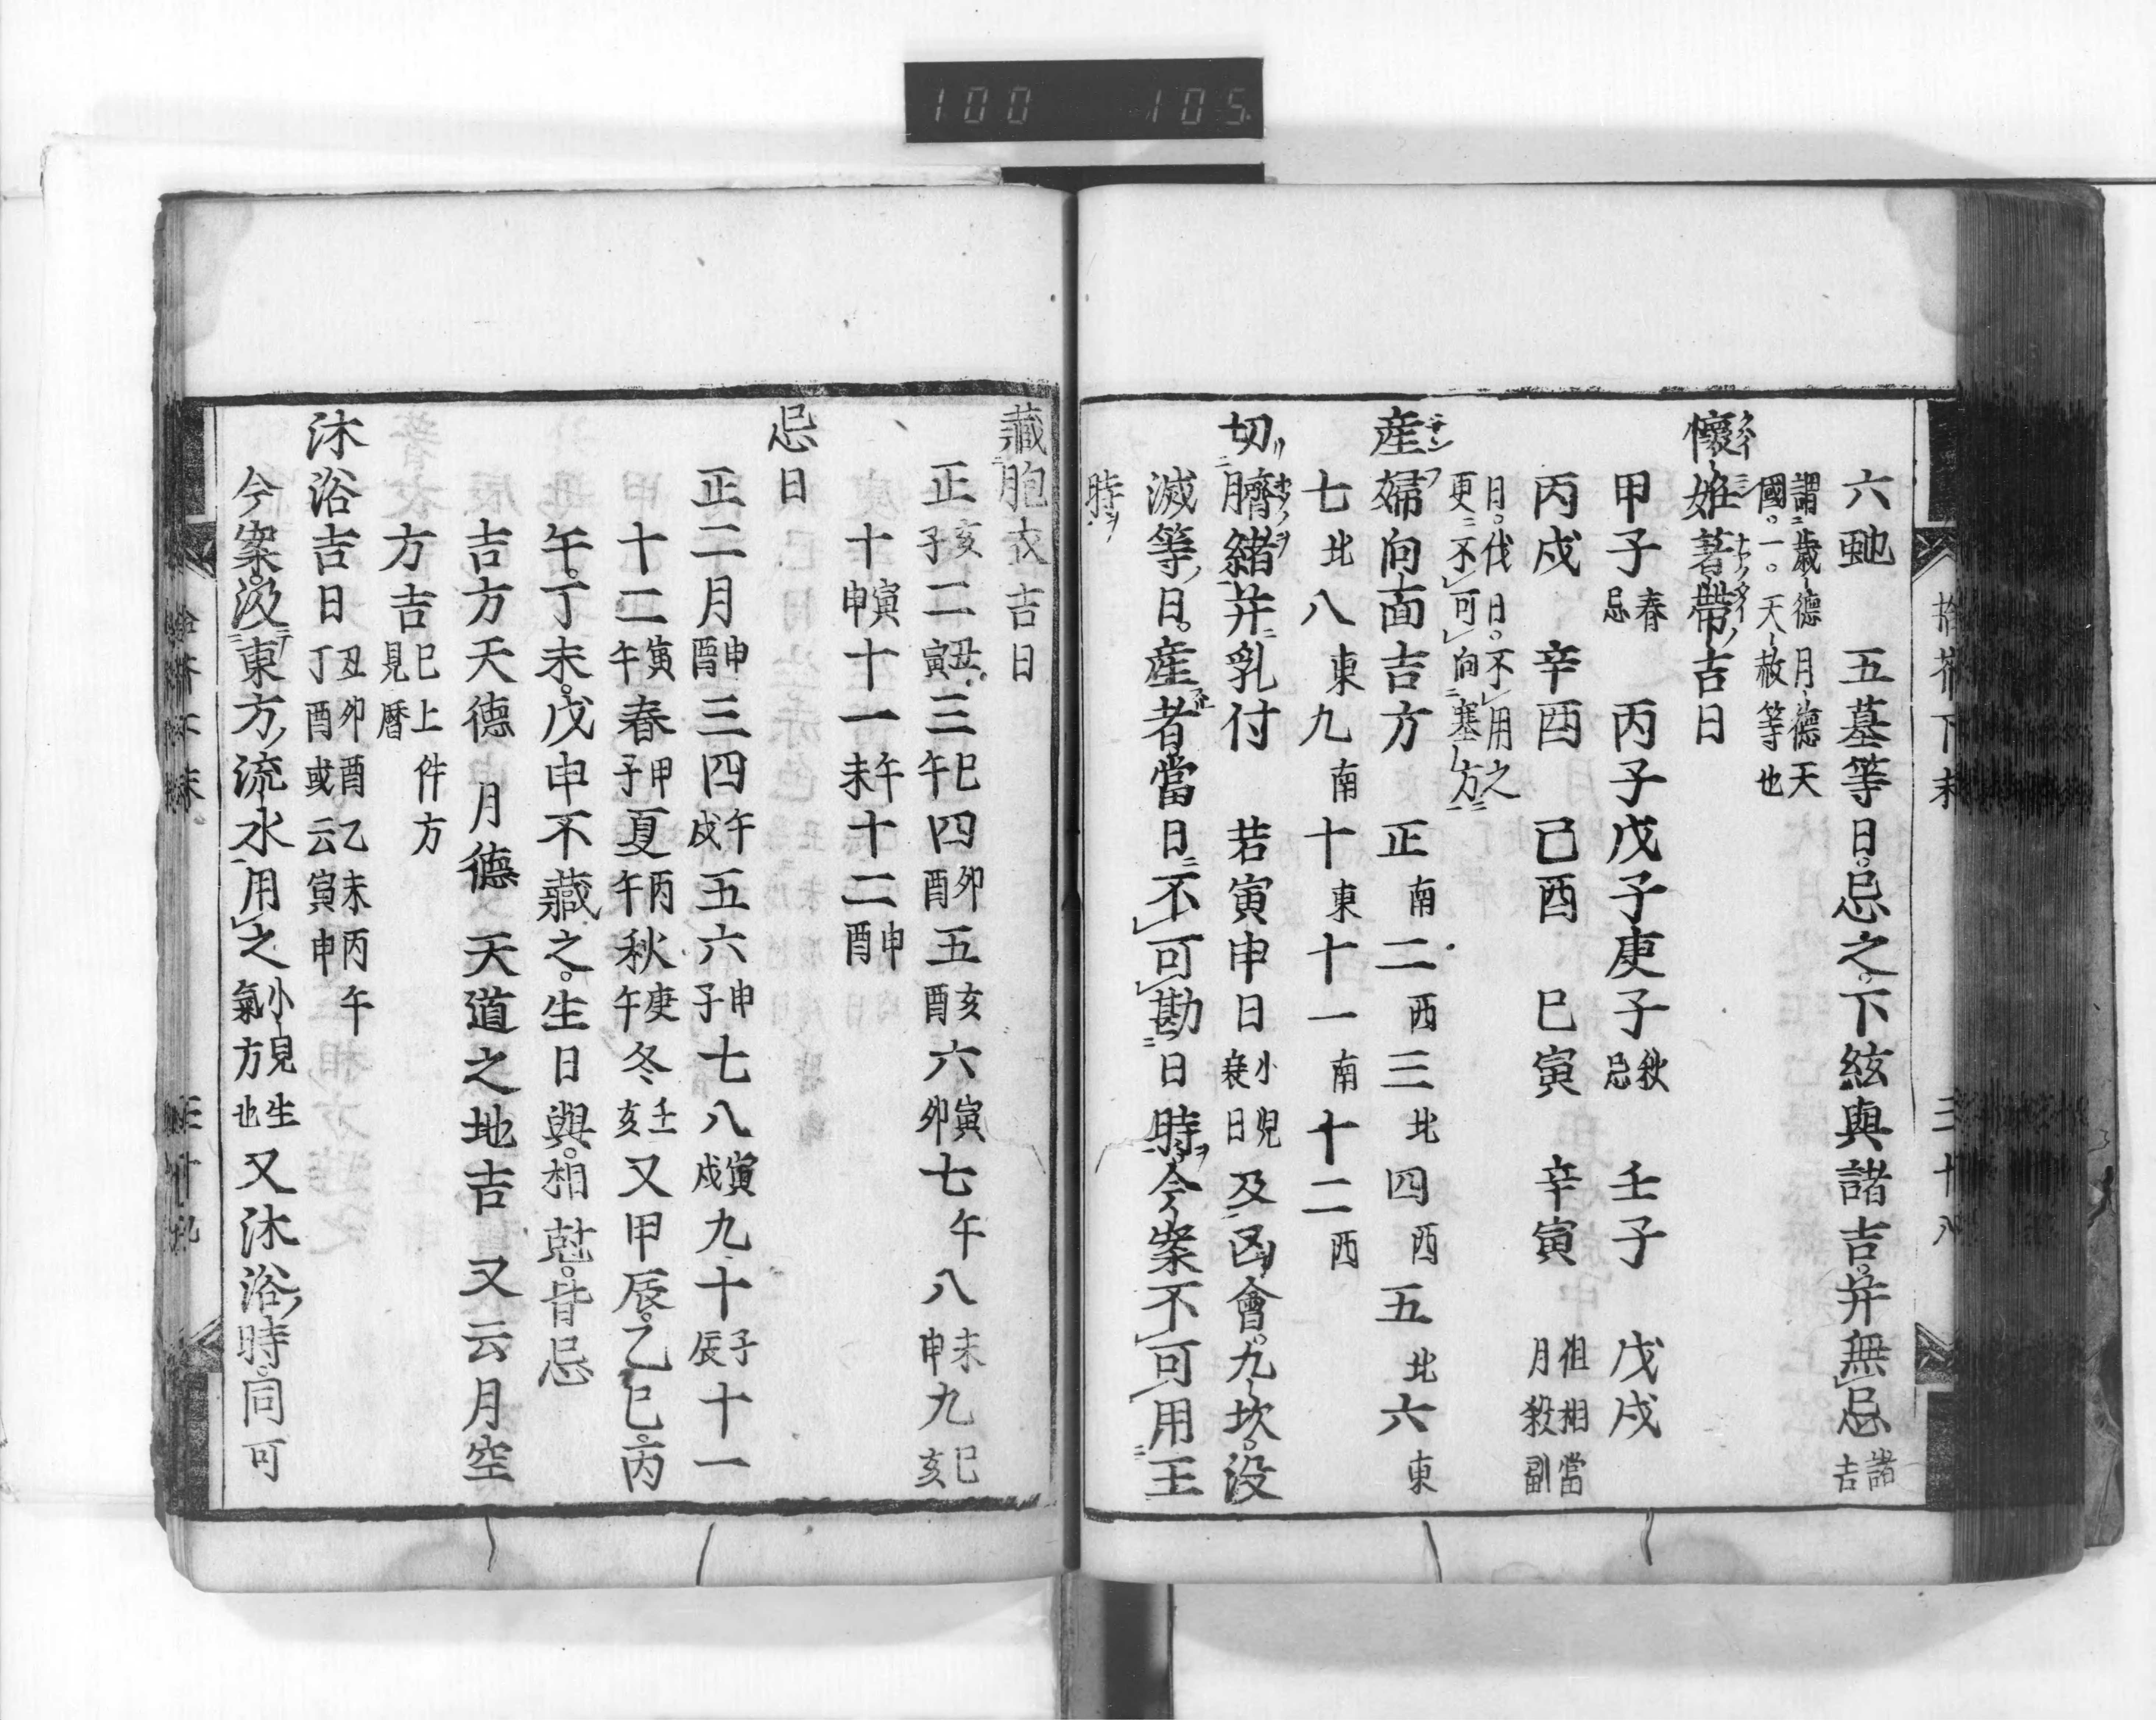 100 105
六虵 五墓等日。忌之。下絃與諸吉。并無忌 諸吉
謂歳德月德天
國。一。天赦等也
懷姙著帶吉日
甲子 春忌 丙子戊子庚子 秋忌 壬子 戊戌
丙戌 辛酉 己酉 巳寅 辛寅 但相當月殺副
日。伐日。不用之
更不可向塞方
産婦向面吉方 正南二西三北四西五北六東
七北八東九南十東十一南十二西
切臍緒并乳付 若寅申日 小兒衰日 及凶會。九坎。没
滅等日。産者當日不可勘日時今案不可用王
時
藏胞衣吉日
正 亥子 二 丑寅 三 巳午 四 卯酉 五 亥酉 六 寅卯 七 午 八 未申 九 巳亥
十 寅申 十一 午未 十二 申酉
忌日
正二月 申酉 三四 午戌 五六 申子 七八 寅戌 九十 子辰 十一
十二 寅午 春 甲子 夏 丙午 秋 庚午 冬 壬亥 又甲辰。乙巳。丙
午。丁未。戊申不藏之。生日與。相尅。皆忌
吉方天德 月德 天道之地吉 又云月空
方吉 巳上件方見暦
沐浴吉日 丑卯酉乙未丙午丁酉或云寅申
今案。汲東方流水用之 小兒生氣方也 又沐浴時。同可